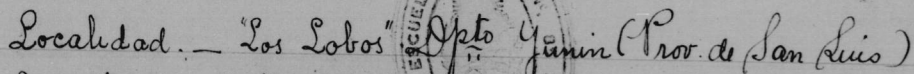 Localidad. — "Los Lobos". Dpto Junin (Prov. de San Luis)